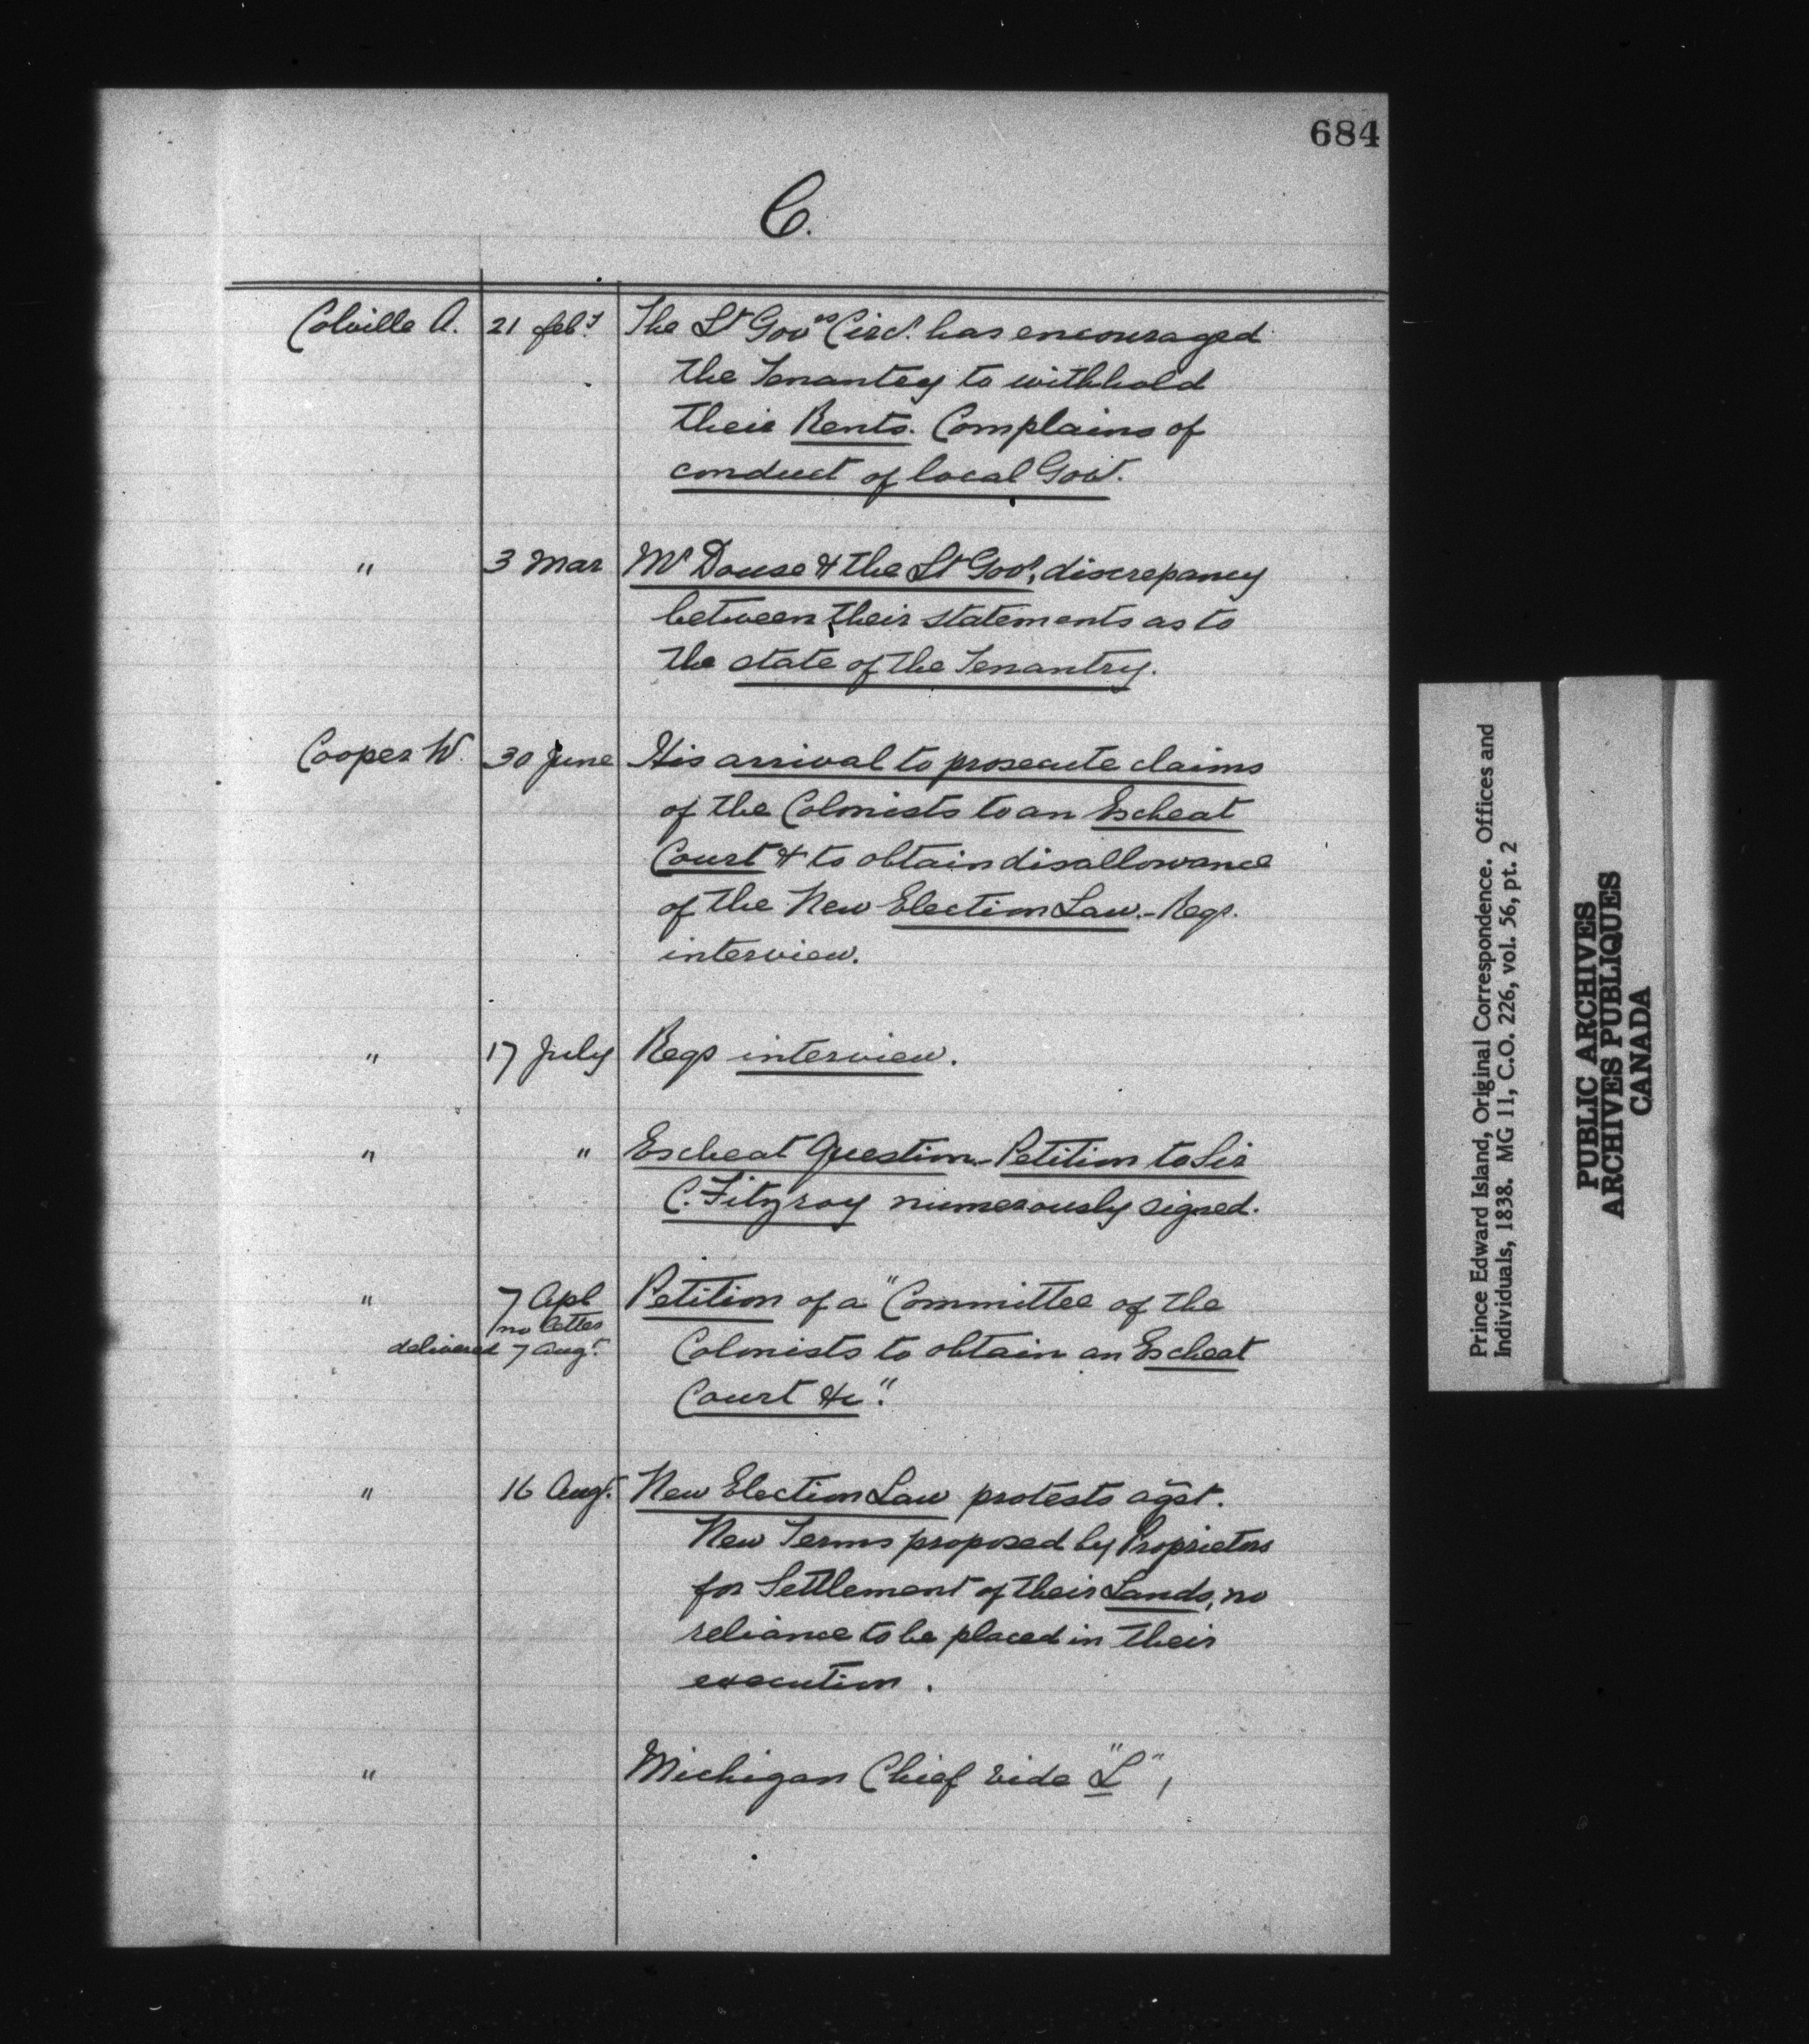 684
C.
Colville A. 21 feby The Lt Govrs Circr. has encouraged
the Tenantry to withhold
their Rents. Complains of
conduct of local Govt.
" 3 Mar Mr Douse & the Lt Govr, discrepancy
between their statements as to
the state of the Tenantry.
Cooper W. 30 June His arrival to prosecute claims
of the Colonists to an Escheat
Court & to obtain disallowance
of the New Election Law.- Reqs.
interview.
" 17 July Reqs interview.
" " Escheat Question - Petition to Sir
C. Fitzroy numerously signed.
" 7 Apl Petition of a "Committee of the
no letter
delivered 7 Augt. Colonists to obtain an Escheat
Court &c".
" 16 Augt. New Election Law protests agst.
New Terms proposed by Proprietors
for Settlement of their Lands, no
reliance to be placed in their
execution.
" Michigan Chief vide "L",
Prince Edward Island, Original Correspondence. Offices and
Individuals, 1838. MG 11, C.O. 226, vol. 56, pt. 2
PUBLIC ARCHIVES
ARCHIVES PUBLIQUES
CANADA